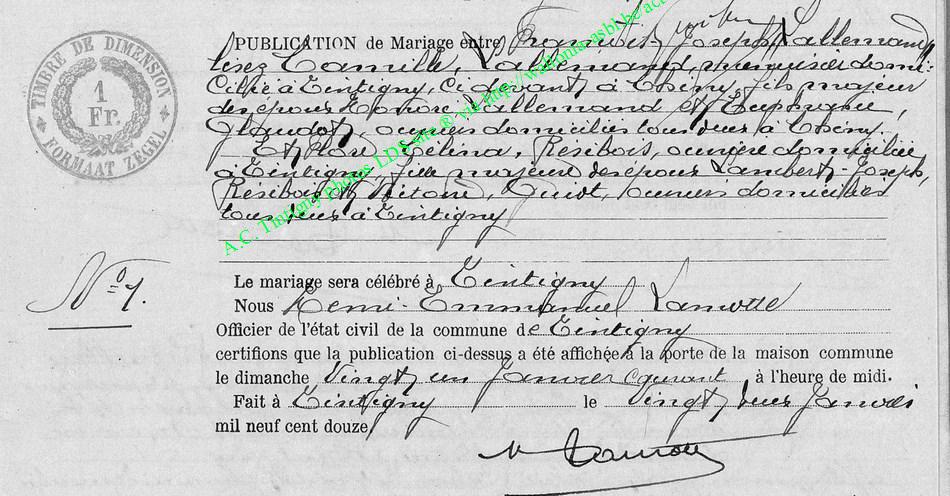 TIMBRE DE DIMENSION
1
Fr.
FORMAAT ZEGEL
PUBLICATION de Mariage entre François Joseph Lallemand
Camille Lallemand, menuisier domi-
cilié à Tintigny, ci devant à Thésny, fils majeur
des époux Honoré Lallemand et Euphrasie,
Glaudot, ouvriers domiciliés tous deux à Thésny.
Et Rose Célina, Résibois, ouvrière domiciliée
à Tintigny, fille majeure des époux Lambert-Joseph,
Résibois et Guiot, ouvriers domiciliés
tous deux à Tintigny
N° 1.
Le mariage sera célébré à Tintigny
Nous Remi-Emmanuel Lamotte
Officier de l'état civil de la commune de Tintigny
certifions que la publication ci-dessus a été affichée à la porte de la maison commune
le dimanche Vingt un Janvier courant à l'heure de midi.
Fait à Tintigny le Vingt deux Janvier
mil neuf cent douze
Lamotte
A.C. Tintigny photos LDS site ® via http://wallonia-asbbe/